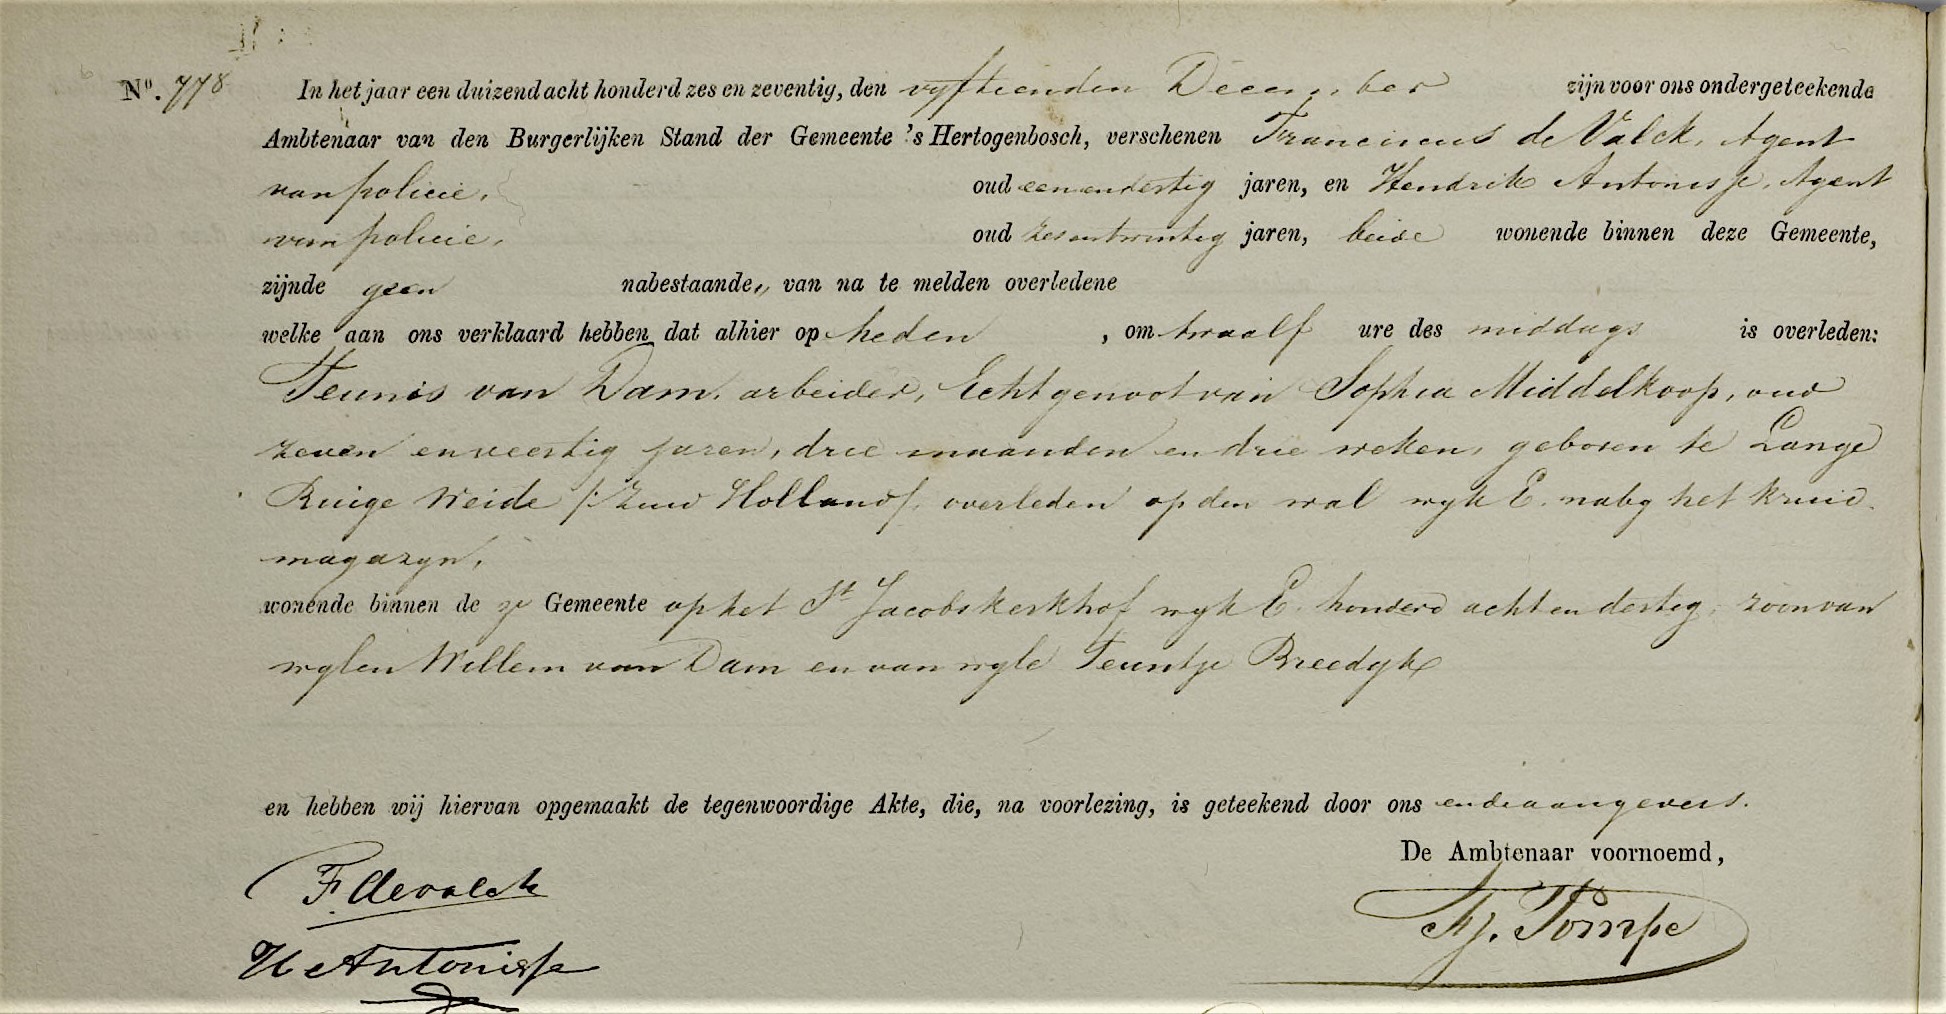 No. 778 In het jaar een duizend acht honderd zes en zeventig, den vyftienden December zijn voor ons ondergeteekende
Ambtenaar van den Burgerlijken Stand der Gemeente 's Hertogenbosch, verschenen Franciscus de Valck, Agent
van policie, oud eenendertig jaren, en Hendrik Antonisse, Agent
van policie, oud zesentwintig jaren, beide wonende binnen deze Gemeente,
zijnde geen nabestaande,, van na te melden overledene
welke aan ons verklaard hebben dat alhier op heden , om twaalf ure des middags is overleden:
Teunis van Dam, arbeider, Echtgenoot van Sophia Middelkoop, oud
zeven en veertig jaren, drie maanden en drie weken, geboren te Lange
Ruige Weide /: Zuid Holland/, overleden op den wal wyk E. naby het kruid
magazyn,
wonende binnen de ze Gemeente op het St Jacobskerkhof wyk E. honderd acht en dertig, zoon van
wylen Willem van Dam en van wyle Teuntje Breedyk
en hebben wij hiervan opgemaakt de tegenwoordige Akte, die, na voorlezing, is geteekend door ons en de aangevers.
De Ambtenaar voornoemd,
F. de valck
H Antonisse
Pompe